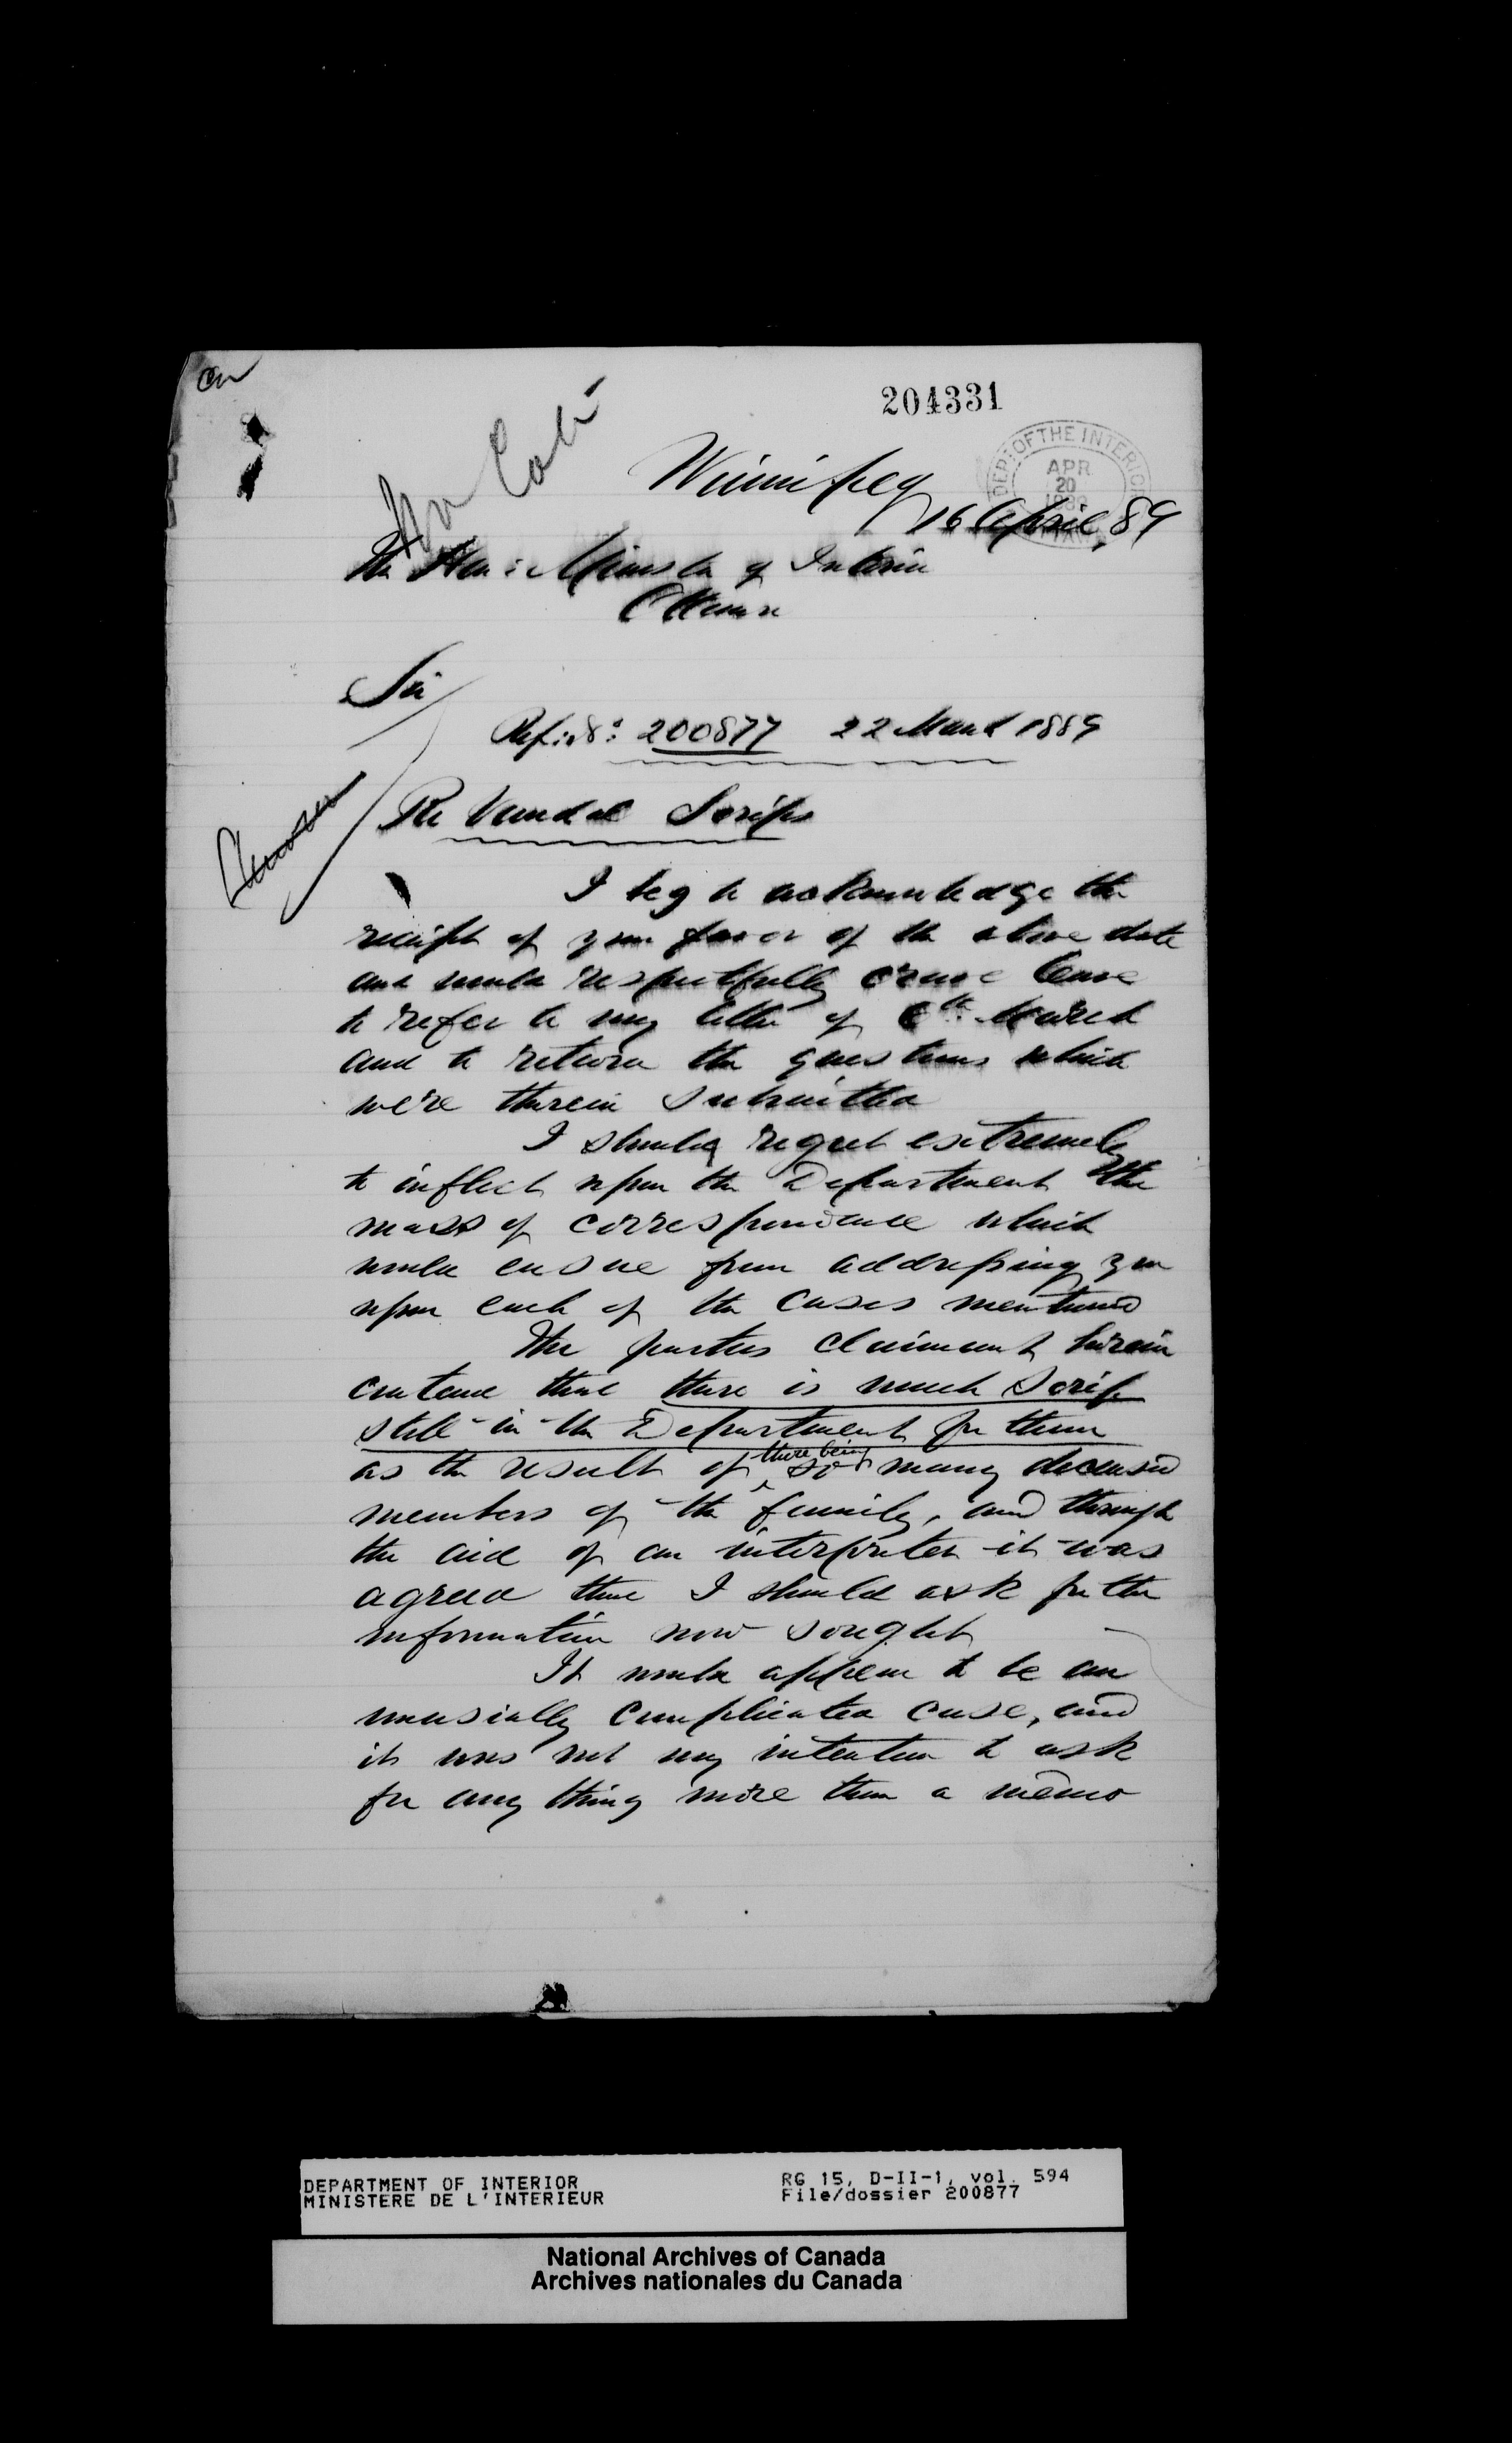 204331
DEPT OF THE INTERIOR
APR
20
Winnipeg
16 April, 89
The Hon: Minister of Interior
Ottawa
Sir
Ref: No: 200877 22 March 1889
Re Vandal Scrips
I beg to acknowledge the
receipt of your favor of the above date
and would respectfully crave leave
to refer to my letter of 6th March
and to return the questions which
were therein submitted
I should regret extremely
to inflict upon the Department the
mass of correspondence which
would ensue from addressing you
upon each of the cases mentioned
The parties claimant herein
contend that there is much Scrip
still in the Department for them
as the result of there being so many deceased
members of the family, and through
the aid of an interpreter it was
agreed that I should ask for the
information now sought
It would appear to be an
unusially complicated case, and
it was not my intention to ask
for any thing more than a memo
DEPARTMENT OF INTERIOR
MINISTERE DE L'INTERIEUR
RG 15, D-II-1, vol. 594
File/dossier 200877
National Archives of Canada
Archives nationales du Canada